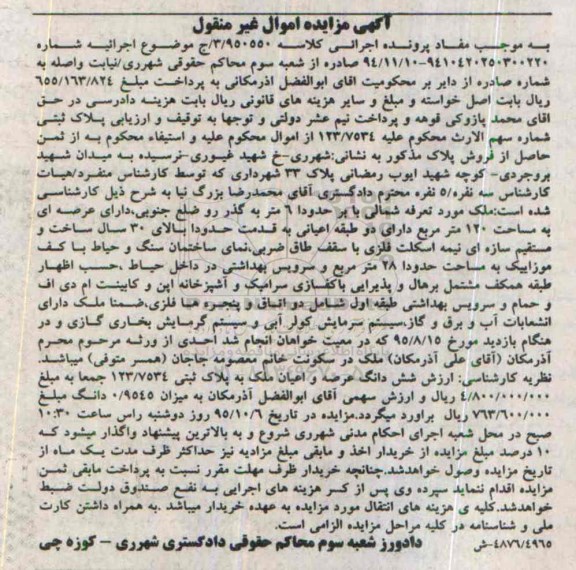 آگهی مزایده اموال غیر منقول
به موجب مفاد پرونده اجرائی کلاسه ۳/۹۵۰۵۵۰/ج موضوع اجرائیه شماره
۹۴۱۰۴۲۰۲۵۰۳۰۰۲۲۰-۹۴/۱۱/۱۰ صادره از شعبه سوم محاکم حقوقی شهرری/نیابت واصله به
شماره صادره از دایر بر محکومیت اقای ابوالفضل اذرمکانی به پرداخت مبلغ ۶۵۵/۱۶۳/۸۲۴
ریال بابت اصل خواسته و مبلغ و سایر هزینه های قانونی ریال بابت هزینه دادرسی در حق
اقای محمد پازوکی قوهه و پرداخت نیم عشر دولتی و توجها به توقیف و ارزیابی پلاک ثبتی
شماره سهم الارث محکوم علیه ۱۲۳/۷۵۳۴ از اموال محکوم علیه و استیفاء محکوم به از ثمن
حاصل از فروش پلاک مذکور به نشانی:شهرری-خ شهید غیوری-نرسیده به میدان شهید
بروجردی- کوچه شهید ایوب رمضانی پلاک ۳۳ شهرداری که توسط کارشناس منفرد/هیات
کارشناس سه نفره/۵ نفره محترم دادگستری آقای محمدرضا بزرگ نیا به شرح ذیل کارشناسی
شده است:ملک مورد تعرفه شمالی با بر حدودا ۶ متر به گذر رو ضلع جنوبی،دارای عرصه ای
به مساحت ۱۲۰ متر مربع دارای دو طبقه اعیانی به قدمت حدودا بالای ۳۰ سال ساخت و
مستقیم سازه ای نیمه اسکلت فلزی با سقف طاق ضربی،نمای ساختمان سنگ و حیاط با کف
موزاییک به مساحت حدودا ۲۸ متر مربع و سرویس بهداشتی در داخل حیاط ،حسب اظهار
طبقه همکف مشتمل برهال و پذیرایی باکفسازی سرامیک و آشپزخانه اپن و کابینت ام دی اف
و حمام و سرویس بهداشتی طبقه اول شامل دو اتاق و پنجره ها فلزی،ضمنا ملک دارای
انشعابات آب و برق و گاز،سیستم سرمایش کولر آبی و سیستم گرمایش بخاری گازی و در
هنگام بازدید مورخ ۹۵/۸/۱۵ که در معیت خواهان انجام شد احدی از ورثه مرحوم محرم
آذرمکان (آقای علی آذرمکان) ملک در سکونت خانم معصومه جاجان (همسر متوفی) میباشد.
نظریه کارشناسی: ارزش شش دانگ عرصه و اعیان ملک به پلاک ثبتی ۱۲۳/۷۵۳۴ جمعا به مبلغ
۴/۸۰۰/۰۰۰/۰۰۰ ریال و ارزش سهمی آقای ابوالفضل آذرمکان به میزان ۰/۹۵۴۵ دانگ مبلغ
۷۶۳/۶۰۰/۰۰۰ ریال براورد میگردد.مزایده در تاریخ ۹۵/۱۰/۶ روز دوشنبه راس ساعت ۱۰:۳۰
صبح در محل شعبه اجرای احکام مدنی شهرری شروع و به بالاترین پیشنهاد واگذار میشود که
۱۰ درصد مبلغ مزایده از خریدار اخذ و مابقی مبلغ مزادیه نیز حداکثر ظرف مدت یک ماه از
تاریخ مزایده وصول خواهدشد.چنانچه خریدار ظرف مهلت مقرر نسبت به پرداخت مابقی ثمن
مزایده اقدام ننماید سپرده وی پس از کسر هزینه های اجرایی به نفع صندوق دولت ضبط
خواهدشد.کلیه ی هزینه های انتقال مورد مزایده به عهده خریدار میباشد .به همراه داشتن کارت
ملی و شناسنامه در کلیه مراحل مزایده الزامی است.
۴۸۷۶/۴۹۶۵-ش دادورز شعبه سوم محاکم حقوقی دادگستری شهرری – کوزه چی